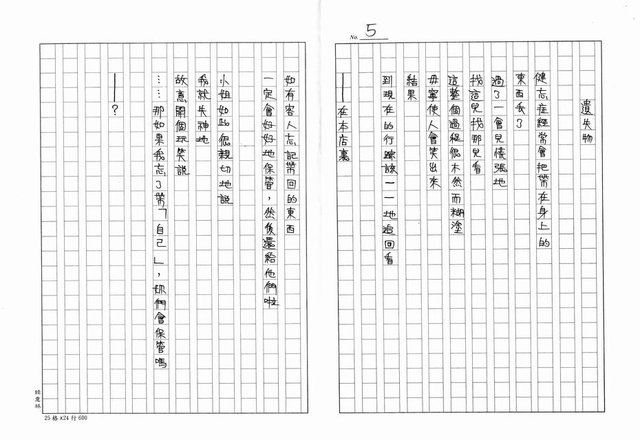 No. 5
遺失物
健忘症經常會把帶在身上的
東西丟了
過了一會兒慌張地
找這兒找那兒看
這整個過程總木然而糊塗
毋寧使人會笑出來
結果
到現在的行蹤該一一地追回看
——在本店裏
如有客人忘記帶回的東西
一定會好好地保管，然後還給他們啦
小姐如此很親切地說
我就失神地
故意開個玩笑說
……那如果我忘了帶「自己」，妳們會保管嗎
——？
25格x24行600